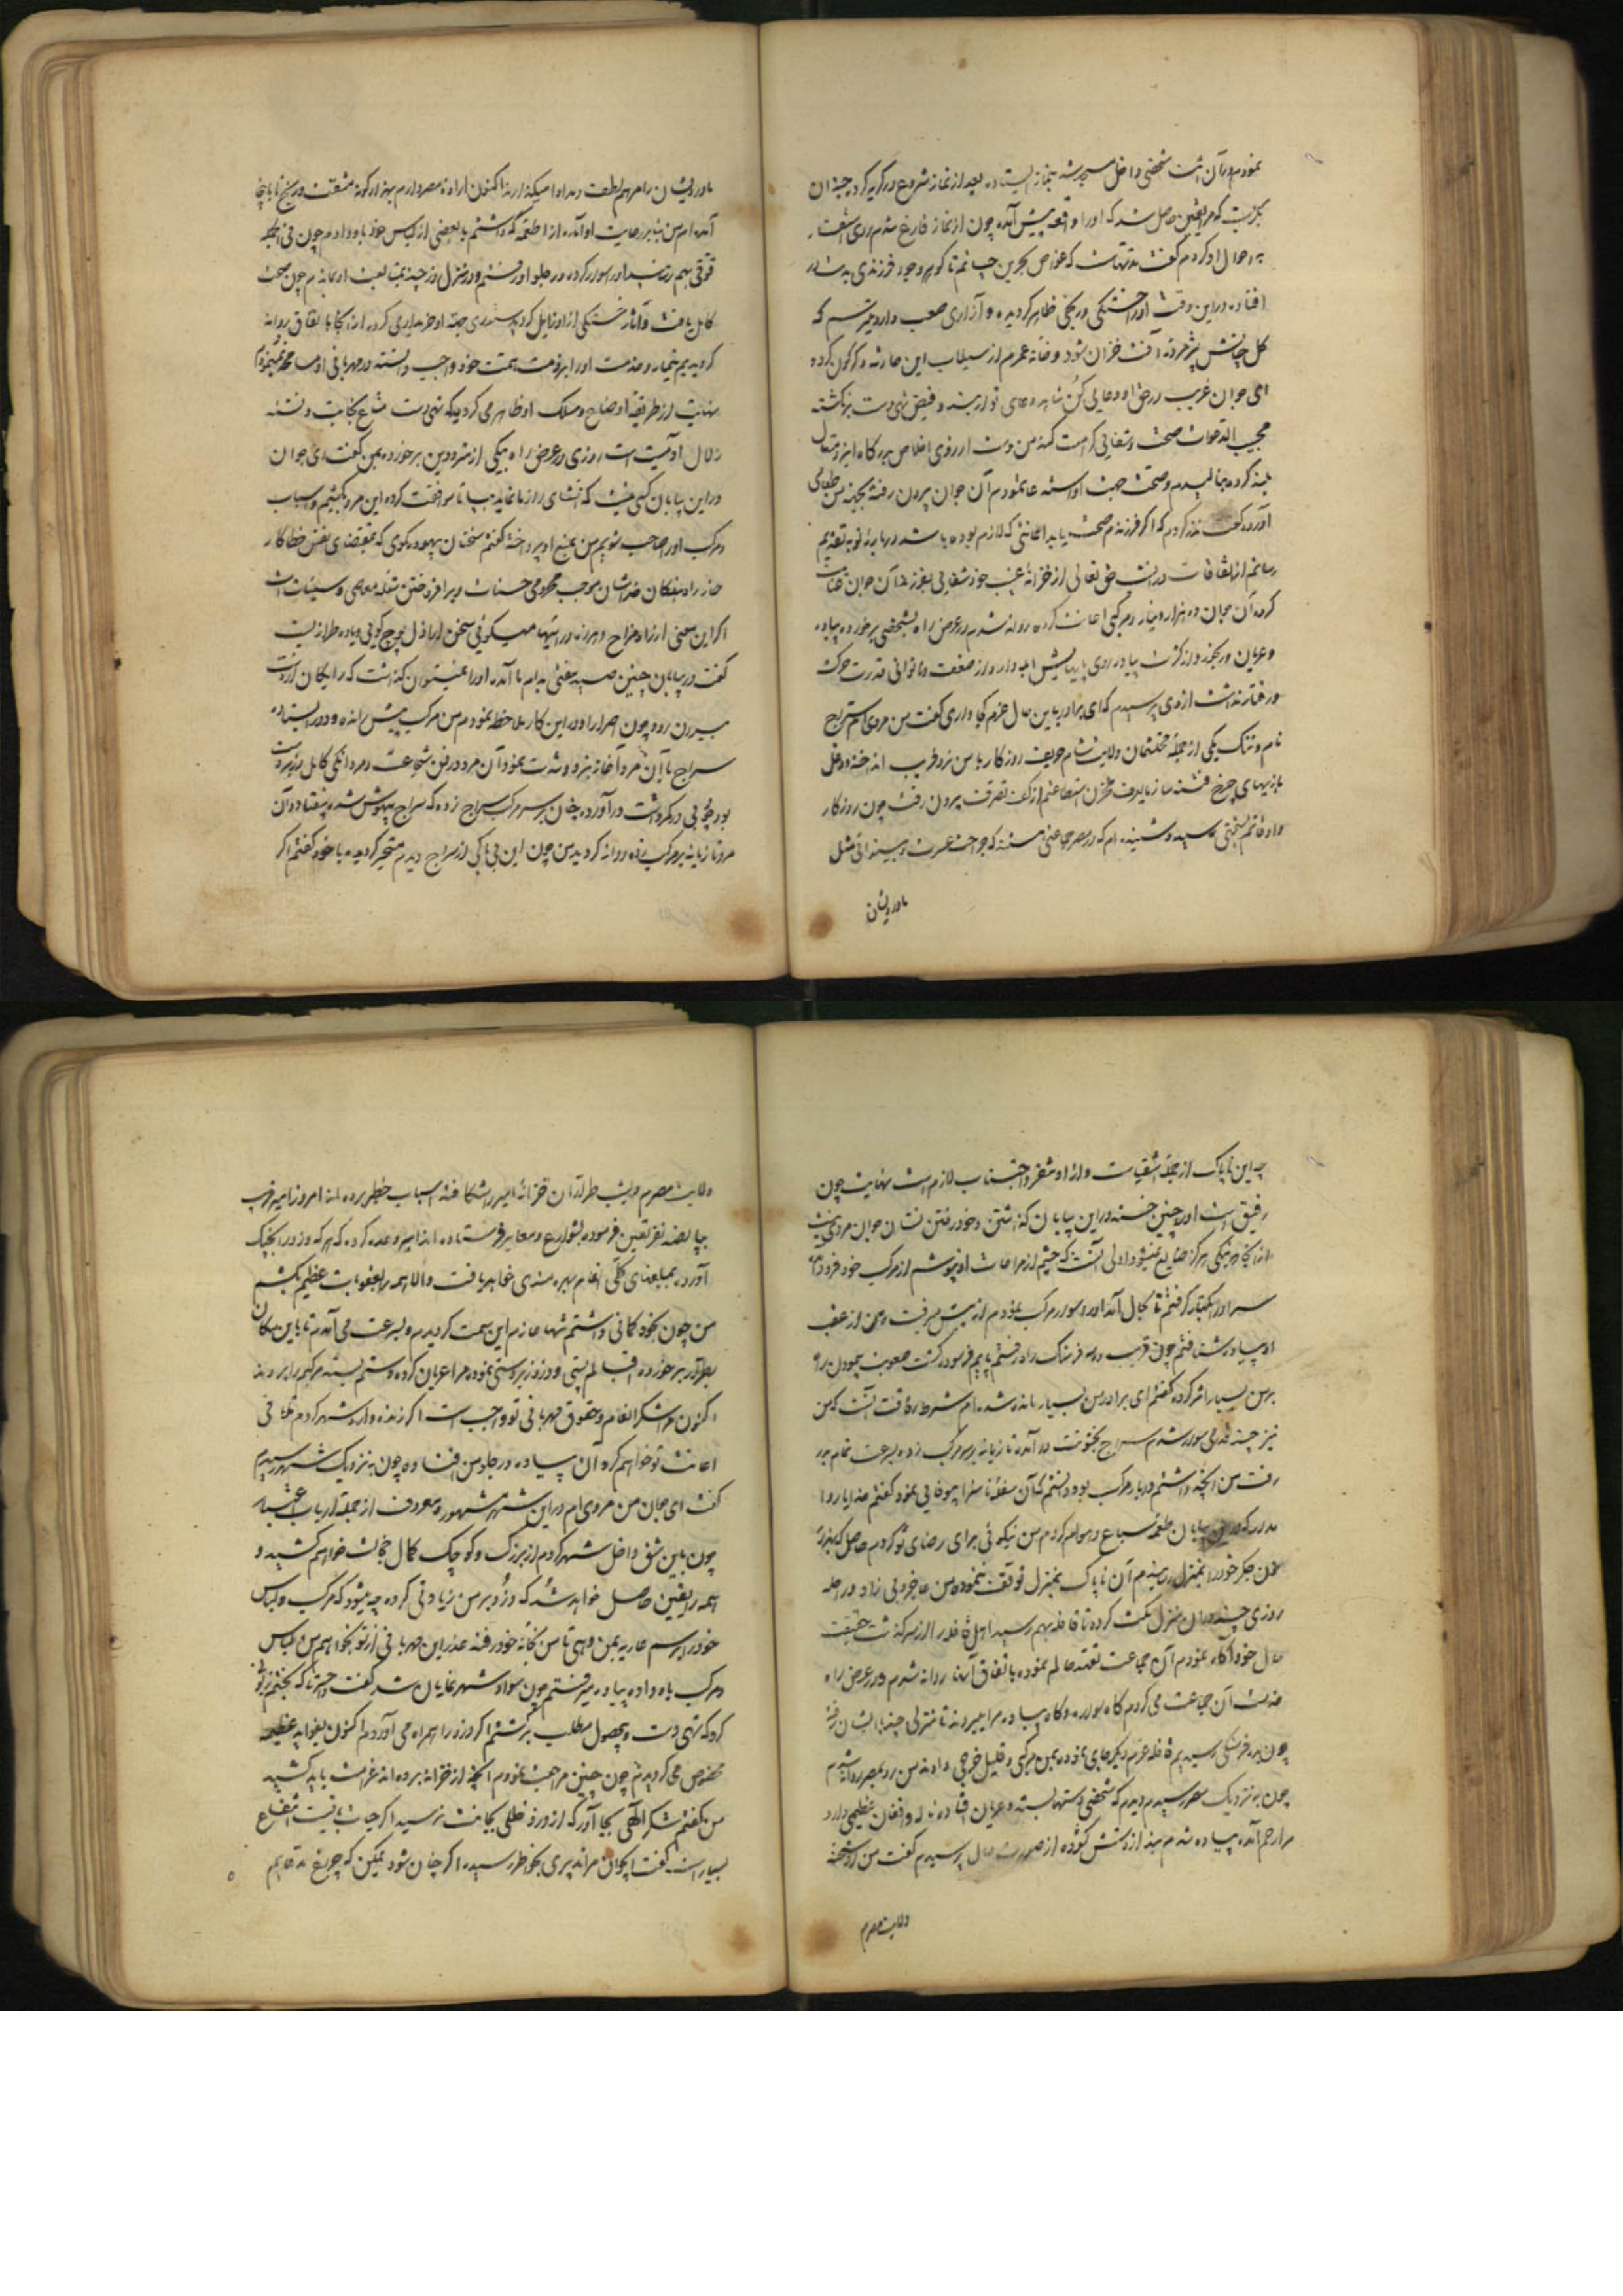 نمودم در آن اثنا شخصی داخل مسجد شد بنماز ایستاده بعد از نماز شروع در گریه کرد چندان
بگریست که مرا یقین حاصل شد که او را واقعه پیش آمده چون از نماز فارغ شدم روی شفقت
به احوال او کردم گفت مدتهاست که غواص بحرین جانم تا گوهر وجود فرزندی بدست
افتاده در این وقت او را خستگی و رنجی ظاهر گردیده و آزاری صعب دارد میترسم که
گل جانش پژمرده آفت خزان شود و خانه عمرم از سیلاب این حادثه دگرگون گردد
ای جوان غریب در حق او دعایی کن شاید دعای تو از فیض تهی دست برنگشته
مجیب الدعوات صحت و شفایی کرامت کند من دست از روی اخلاص بدرگاه ایزد متعال
بلند کرده بنالیدم و صحت جهت او استدعا نمودم آن جوان بیرون رفته بجهة من طعامی
آورد و گفت نذر کردم که اگر فرزندم صحت یابد اعانتی که لازم بوده باشد درباره تو بتقدیم
رسانم از اتفاقات در آن شب حق تعالی از خزانه غیب خود شفایی بفرزند آن جوان عنایت
کرد آن جوان ده هزار دینار و مرکبی اعانت کرده روانه شدم در عرض راه بشخصی برخورده پیاده
و عریان و رنجور و از کثرت پیاده روی پایهایش آبله دار و از ضعف و ناتوانی قدرت حرکت
و رفتار نداشت از وی پرسیدم که ای برادر باین حال عزم کجا داری گفت من مردی ام سراج
نام و تنگ یکی از جمله محتشمان ولایت شام حریف روزگار با من نرد فریب انداخته و دغل
بازیهای چرخ فتنه ساز نقد مخزن استطاعتم از کف تصرف بیرون رفت چون روزگار
و اوقاتم بسختی رسید و شنیده ام که در مصر جماعتی هستند که جراحت عسرت و بینوائی مثل
ما درویشان
ما درویشان را مرهم لطف و مداوا میکنند اکنون اراده مصر دارم بهزار گونه مشقت و رنج تا باینجا
آمده ام من بنا بر رعایت او آنچه از اطعمه که داشتم با بعضی از لباس خود باو دادم چون فی الجمله
قوتی بهم رسانید او را سوار کرده در جلو او رفتم و در منزل روز چند بمتابعت او ماندم چون صحت
کامل یافت و آثار خستگی از او زایل گردید ستوری جهة او خریداری کرده از آنجا باتفاق روانه
گردیدیم تیمار و خدمت او را بر ذمت همت خود واجب دانسته در مهربانی او مسامحه نمینمودم
نهایت از طریقه اوضاع و مسلک او ظاهر می گردید که تهی دست متاع نجابت و تشنه
زلال آدمیت است روزی در عرض راه یکی از مترددین برخورد بمن گفت ای جوان
در این بیابان کسی نیست که افشای راز ما نماید بیا تا موافقت کرده این مرد بکشیم و اسباب
و مرکب او را صاحب شویم من بمنع او پرداخته گفتم سخنان بیهوده مگوی که بمقتضای نفس خطاکار
اگر این سخن از راه مزاح و هرزه درائیها میگوئی سخن اراذل پوچ گوئی و یاوه طرازیست
گفت در بیابان چنین صیدی بدام ما آمده او را غنیمت بتوان گذاشت که رایگان از دست
بیرون رود چون اصرار او در این کار ملاحظه نمودم من مرکب پیش رانده و دور ایستادم
سراج با آن مرد آغاز نبرد و شدت نمود آن مرد در فن شجاعت و مردانگی کامل
بود چوبی در کمر داشت درآورد چنان بر سر مرکب سراج زده که سراج بیهوش شده بیفتاد و آن
مرد تازیانه بر مرکب زده روانه گردید من چون این بی باکی از سراج دیدم متحیر گردیده با خود گفتم اگر
چه این ناپاک از جمله اشقیاست و از او تنفر و اجتناب لازم است نهایت چون
رفیق است او را چنین خسته در این بیابان گذاشتن و خود رفتن نشان جوان مردی نیست
از آنجا که نیکی هرگز ضایع نمیشود اولی آنست که چشم از مراعات او نپوشم از مرکب خود فرود آمده
سر او را بکنار گرفتم تا بحال آمد او را سوار مرکب نمودم از پیش میرفت و من از عقب
او پیاده شتافتم چون قریب دو سه فرسنگ راه رفتم پایم فرسوده گشت صعوبت پیمودن راه
بر من بسیار اثر کرده گفتم ای برادر من بسیار مانده شده ام شرط رفاقت آنست که من
نیز چند قدمی سوار شوم سراج بخشونت در آمده تازیانه بر مرکب زده بسرعت تمام بدر
رفت من آنچه داشتم در بار مرکب بود دانستم که آن سفله ناسزا بیوفایی نمود گفتم خدایا روا
مدار که در این بیابان طعمه سباع و هوام گردم من نیکوئی برای رضای تو کردم حاصل که بهزار
خون جگر خود را بمنزل رسانیدم آن ناپاک بمنزل توقف ننموده من بعاجزی بی زاد و راحله
روزی چند در آن منزل مکث کرده تا قافله بهم رسید اهل قافله را از سرگذشت حقیقت
حال خود آگاه نمودم آن جماعت تفقد حالم نموده باتفاق آنها روانه شدم و در عرض راه
خدمت آن جماعت می کردم گاه سواره و گاه پیاده مرا میبردند تا منزلی چند با ایشان رفته
چون بدو فرسنگی رسیدیم قافله عزم دیگر جای نموده بمن مرکبی و قلیل خرجی دادند من رو بمصر روانه شدم
چون به نزدیک مصر رسیدم دیدم که شخصی دستها بسته و عریان افتاده ناله و افغان عظیمی دارد
مرا رحم آمده پیاده شدم بند از دستش گشوده از صورت حال پرسیدم گفت من داروغه
ولایت مصرم
ولایت مصرم دیشب طراران خزانه امیر را شکافته اسباب خطیر برده اند امروز امیر قریب
بپانصد نفر تعیین فرموده بشوارع و معابر فرستاده اند امیر وعده کرده که هر که دزد را بچنگ
آورد بمبلغهای کلی انعام بهره مندی خواهد یافت والا همه را بعقوبات عظیم بکشم
من چون بخود گمانی داشتم تنها عازم این سمت گردیدم و بسرعت می آمدم تا باین مکان
بطرار برخورده دزد زبردستی نموده مرا عریان کرده دستم بسته مرکبم را بردند
اکنون مرا شکر انعام و حقوق مهربانی تو واجب است اگر زنده وارد شهر گردم تلافی
اعانت تو خواهم کرد آن پیاده در جلو من افتاده چون به نزدیک شهر رسیدیم
گفت ای جوان من مردی ام در این شهر مشهور و معروف از جمله ارباب اعتبار
چون باین شق داخل شهر گردم از بزرگ و کوچک کمال خجالت خواهم کشید و
همه را یقین حاصل خواهد شد که دزد بر من زیادتی کرده چه میشود که مرکب و لباس
خود را برسم عاریه بمن دهی تا من بخانه خود رفته عذر این مهربانی از تو بخواهم من لباس
و مرکب باو داده پیاده میرفتم چون سواد شهر نمایان شد گفت
کرد که تهی دست و بیحصول مطلب برگشتم اگر دزد را همراه می آوردم اکنون بفواید عظیمه
مخصوص می گردیدم چون چنین مراجعت نمودم آنچه از خزانه برده اند غرامت باید کشید
من گفتم شکر الهی بجا آور که از دزد خللی بجانت نرسید اگر حیات باقیست انتفاع
بسیار است گفت ای جوان مرا تدبیری بخاطر رسیده اگر چنان شود یمکن که چرخ